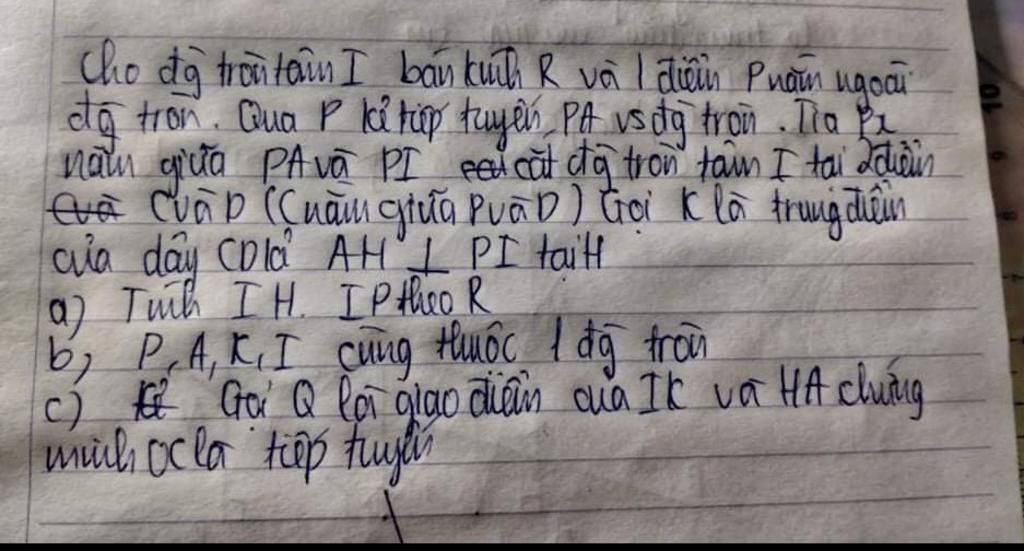 Cho đg tròn tâm I bán kính R và 1 điểm P nằm ngoài
đg tròn. Qua P kẻ tiếp tuyến PA vs đg tròn. Tia Px
nằm giữa PA và PI cắt đg tròn tâm I tại 2 điểm
C và D (C nằm giữa P và D) Gọi K là trung điểm
của dây CD kẻ AH ⊥ PI tại H
a) Tính IH. IP theo R
b, P, A, K, I cùng thuộc 1 đg tròn
c) Gọi Q là giao điểm của IK và HA chứng
minh QC là tiếp tuyến
10
9
8